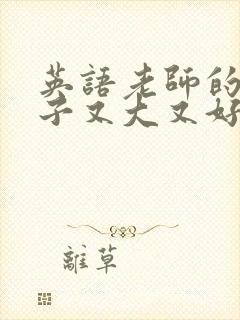 英語老師的
子又大又好
離草